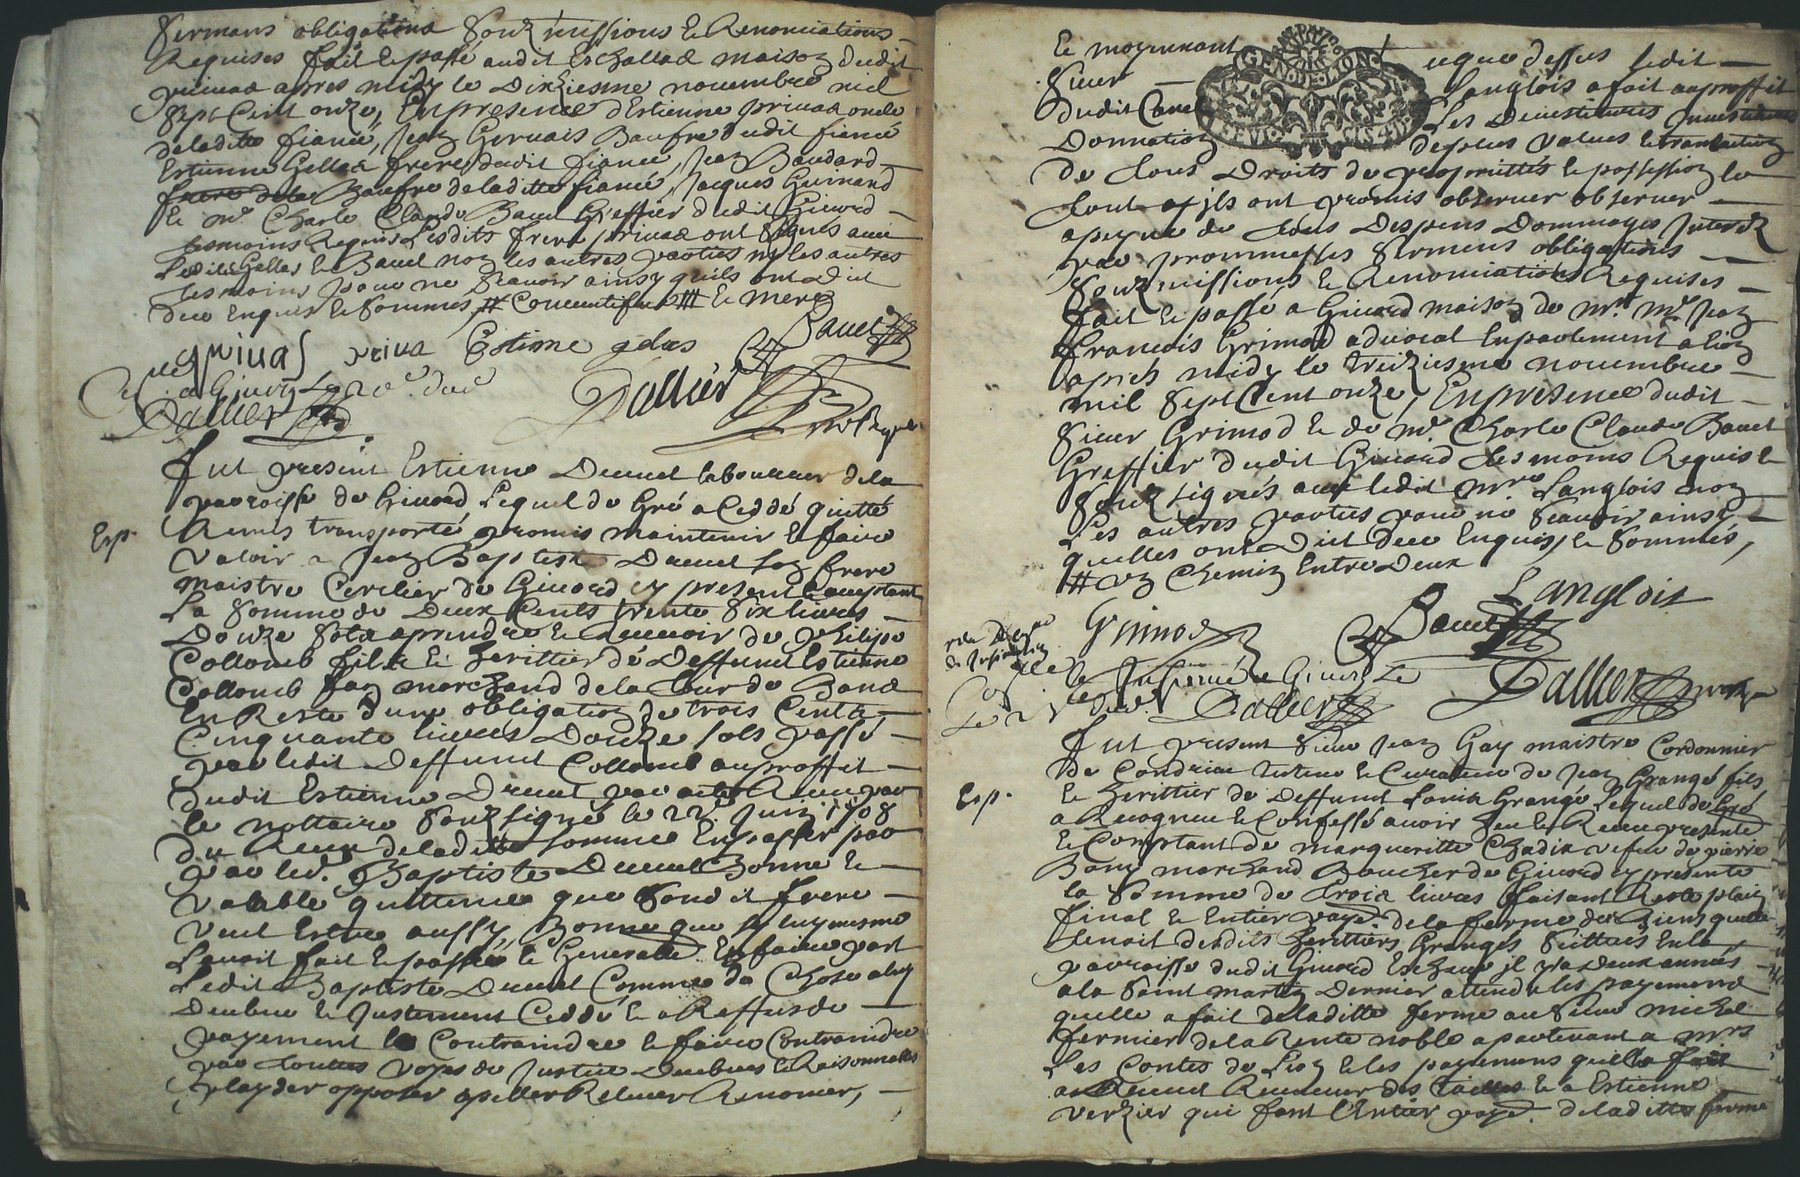 sermans obligations soubzmissions et Renonciations
Requises fait et passé audit Eschallas maison dudit
privas apres midy le dixiesme novembre mil
sept Cent onze, En presence d'Estienne privas oncle
de ladite fiancé, Jean Gervais Baufre dudit fiancé
Estienne Gellas frere dudit fiancé, Jean Baudard
frere de la Baufre de ladite fiancé, Jacques Guinand
et mr. Charle Claude Bauet Greffier dudit Givord
tesmoins Requis Lesdits frere privas ont signés avec
Ledit Gellas et Bauet non les autres parties ny les autres
tesmoins pour ne scavoir ainsy quils ont dit
de ce Enquis et sommés # et mere
privas priva Estiene gelas Bauet
a Givord le
Dallier Dallier
Fut present Estienne Druuet laboureur de la
parroisse de Givord Lequel de Gré a Ceddé quitté
Esp. Remis transporté promis maintenir et faire
Valoir a Jean Baptiste Druuet son frere
maistre Cerclier de Givord cy present acceptant
La somme de Deux Cents trente six livres
Douze sols a prendre et Recevoir de Philipe
Collomb fils et herittier de Deffunt Estienne
Collomb marchand de la tour de Banc
En Reste d'une obligation de trois Cents
Cinquante livres Douze sols passé
par ledit Deffunt Collomb au proffit
dudit Estienne Druuet par acte Receu par
le nottaire soubzsigné le 22e. Juin 1708
du Receu de ladite somme En passer par
par led. Baptiste Druuet Bonne et
Valable quittance que sondit frere
veut Estre aussy Bonne que sy luy mesme
Lavoit fait et passée et Generalle En faire par
Ledit Baptiste Druuet Comme de Chose a luy
Deubue et Justement Ceddé et a Reffus de
payement le Contraindre et faire Contraindre
par touttes voyes de Justice Deubues et Raisonnables
playder opposer apeller Relever Renoncer,
Et moyennant GEN. DE LYON ce que dessus ledit
sieur Langlois a fait au proffit
dudit Les Devestitures Investitures
Donnation de plus values et translation
de tous Droits de propriettés et possession le
tout qu'ils ont promis observer observer
a peyne de tous Despens Dommages Interests
par promesses sermens obligations
soubzmissions et Renonciations Requises
fait et passé a Givord maison de mre. mr. Jean
francois Grimod advocat En parlement a Lion
apres midy le treiziesme novembre
mil sept Cent onze, En presence dudit
sieur Grimod et de mr. Charle Claude Bauet
Greffier dudit Givord tesmoins Requis et
soubzsignés avec ledit mre. Langlois non
Les autres parties pour ne scavoir ainsy
quelles ont Dit de ce Enquis et sommés,
# un Chemin Entre Deux
Langlois
Grimod Bauet
a Givord le
Dallier Dallier
Fut present sieur Jean Gay maistre Cordonnier
de Condrieu tuteur et Curateur de Jean Grangé fils
Esp. Et herittier de Deffunt Louis Grangé Lequel de Gré
a Recogneu et Confessé avoir Eu et Receu presente
et Comptant de Margueritte Chadix vefve de pierre
Bony marchand Boucher de Givord cy presente
la somme de trois livres faisant Reste plain
final et Entier payé de la ferme des Biens quelle
tenoit desdits herittiers Grangés scittués En la
parroisse dudit Givord Escheue il y a Deux années
a la saint martin Dernier attendu les payemens
quelle a fait de ladite ferme au sieur michel
fermier de la Rente noble apartenant a mrs
Les Contes de Lion et les payemens quelle a fait
a Druuet Receveur des tailles et a Estienne
verzier qui font l'Entier payé de ladite ferme